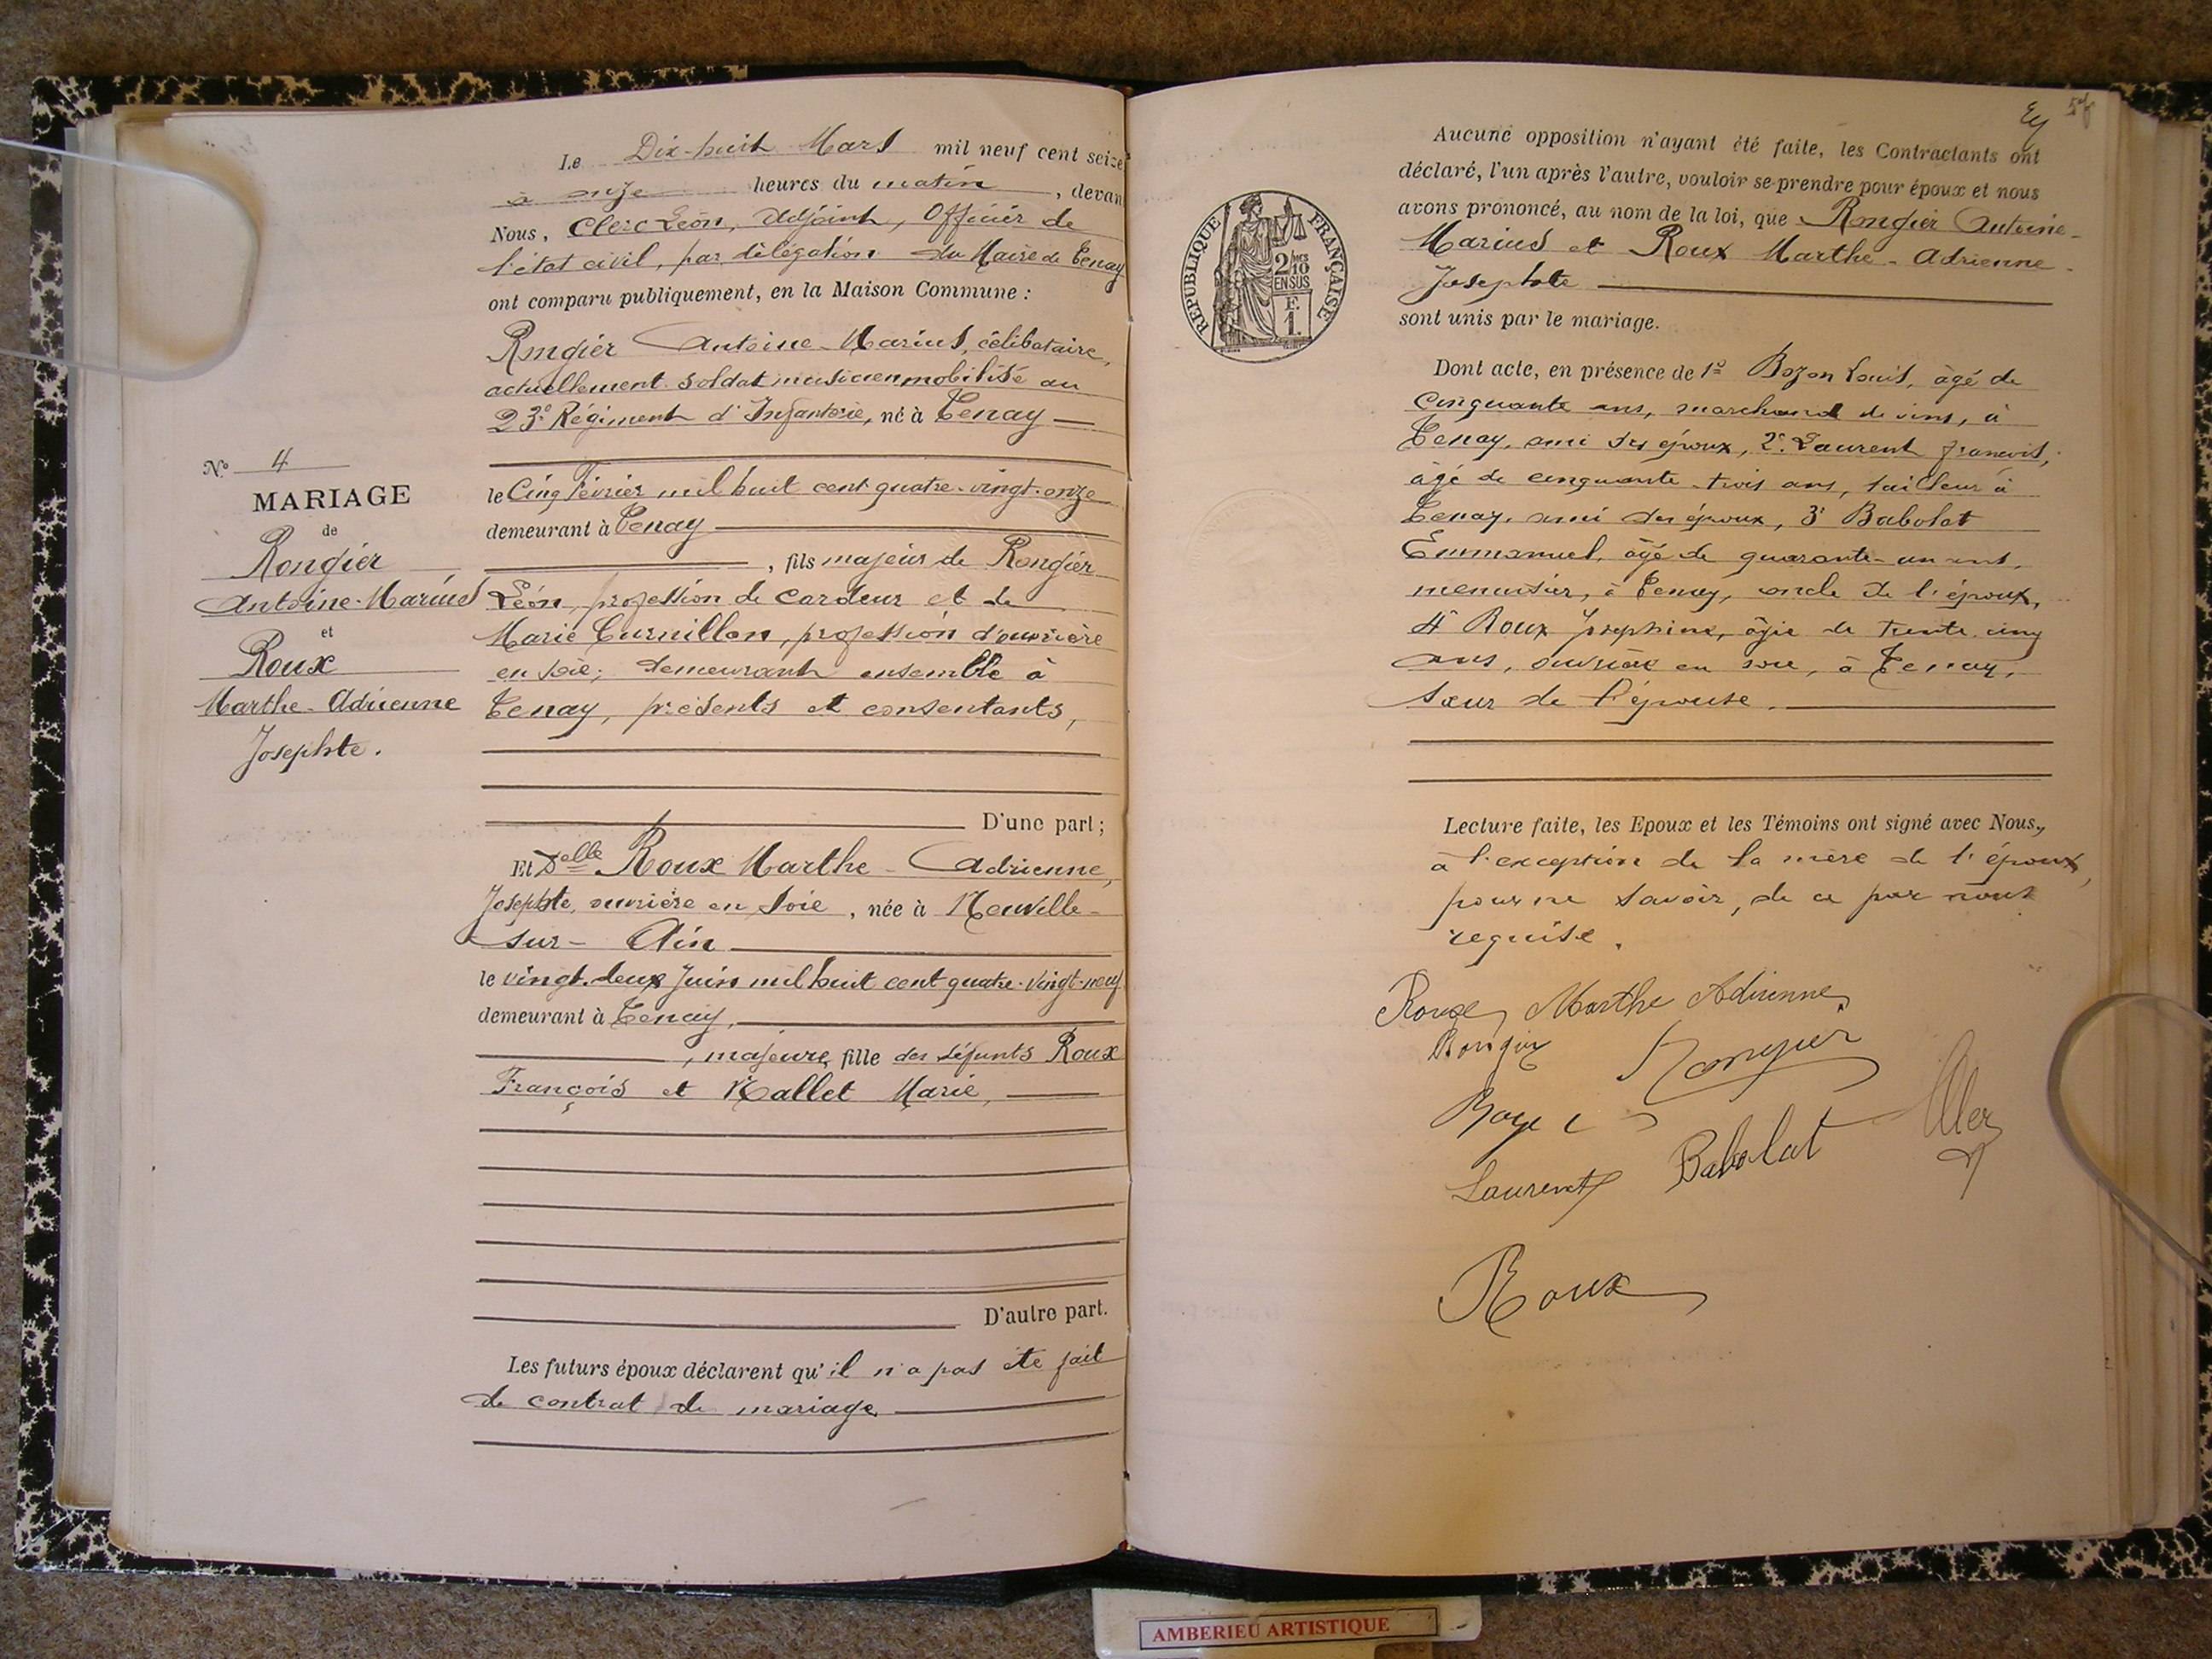 Le Dix-huit Mars mil neuf cent seize
à onze heures du matin, devan
Nous, Clerc Léon, Adjoint, Officier de
l'état civil, par délégation du Maire de Tenay
ont comparu publiquement, en la Maison Commune :
Rongier Antoine-Marius, célibataire,
actuellement soldat musicien mobilisé au
23e Régiment d'Infanterie, né à Tenay
le Cinq Février mil huit cent quatre-vingt-onze
demeurant à Tenay
, fils majeur de Rongier
Léon, profession de cardeur et de
Marie Curnillon, profession d'ouvrière
en soie; demeurant ensemble à
Tenay, présents et consentants,
D'une part ;
Et Delle Roux Marthe-Adrienne,
Josephte, ouvrière en soie, née à Neuville-
sur-Ain
le vingt-deux Juin mil huit cent quatre-vingt-neuf
demeurant à Tenay,
, majeure, fille des défunts Roux
François et Mallet Marie,
D'autre part.
Les futurs époux déclarent qu'il n'a pas été fait
de contrat de mariage
N° 4
MARIAGE
de
Rongier
Antoine-Marius
et
Roux
Marthe-Adrienne
Josephte.
REPUBLIQUE FRANÇAISE
2/10
EN SUS
F.
1.
Aucune opposition n'ayant été faite, les Contractants ont
déclaré, l'un après l'autre, vouloir se prendre pour époux et nous
avons prononcé, au nom de la loi, que Rongier Antoine-
Marius et Roux Marthe-Adrienne-
Josephte
sont unis par le mariage.
Dont acte, en présence de 1° Bozon Louis, âgé de
cinquante ans, marchand de vins, à
Tenay, ami des époux, 2° Laurent François,
âgé de cinquante-trois ans, tailleur à
Tenay, ami des époux, 3° Babolat
Emmanuel, âgé de quarante-un ans,
menuisier, à Tenay, oncle de l'époux,
4° Roux Josephine, âgée de trente cinq
ans, ouvrière en soie, à Tenay,
sœur de l'épouse.
Lecture faite, les Epoux et les Témoins ont signé avec Nous,
à l'exception de la mère de l'époux,
pour ne savoir, de ce par nous
requise.
Roux Marthe Adrienne
Rongier Rongier
Laurent Babolat
Roux
AMBERIEU ARTISTIQUE